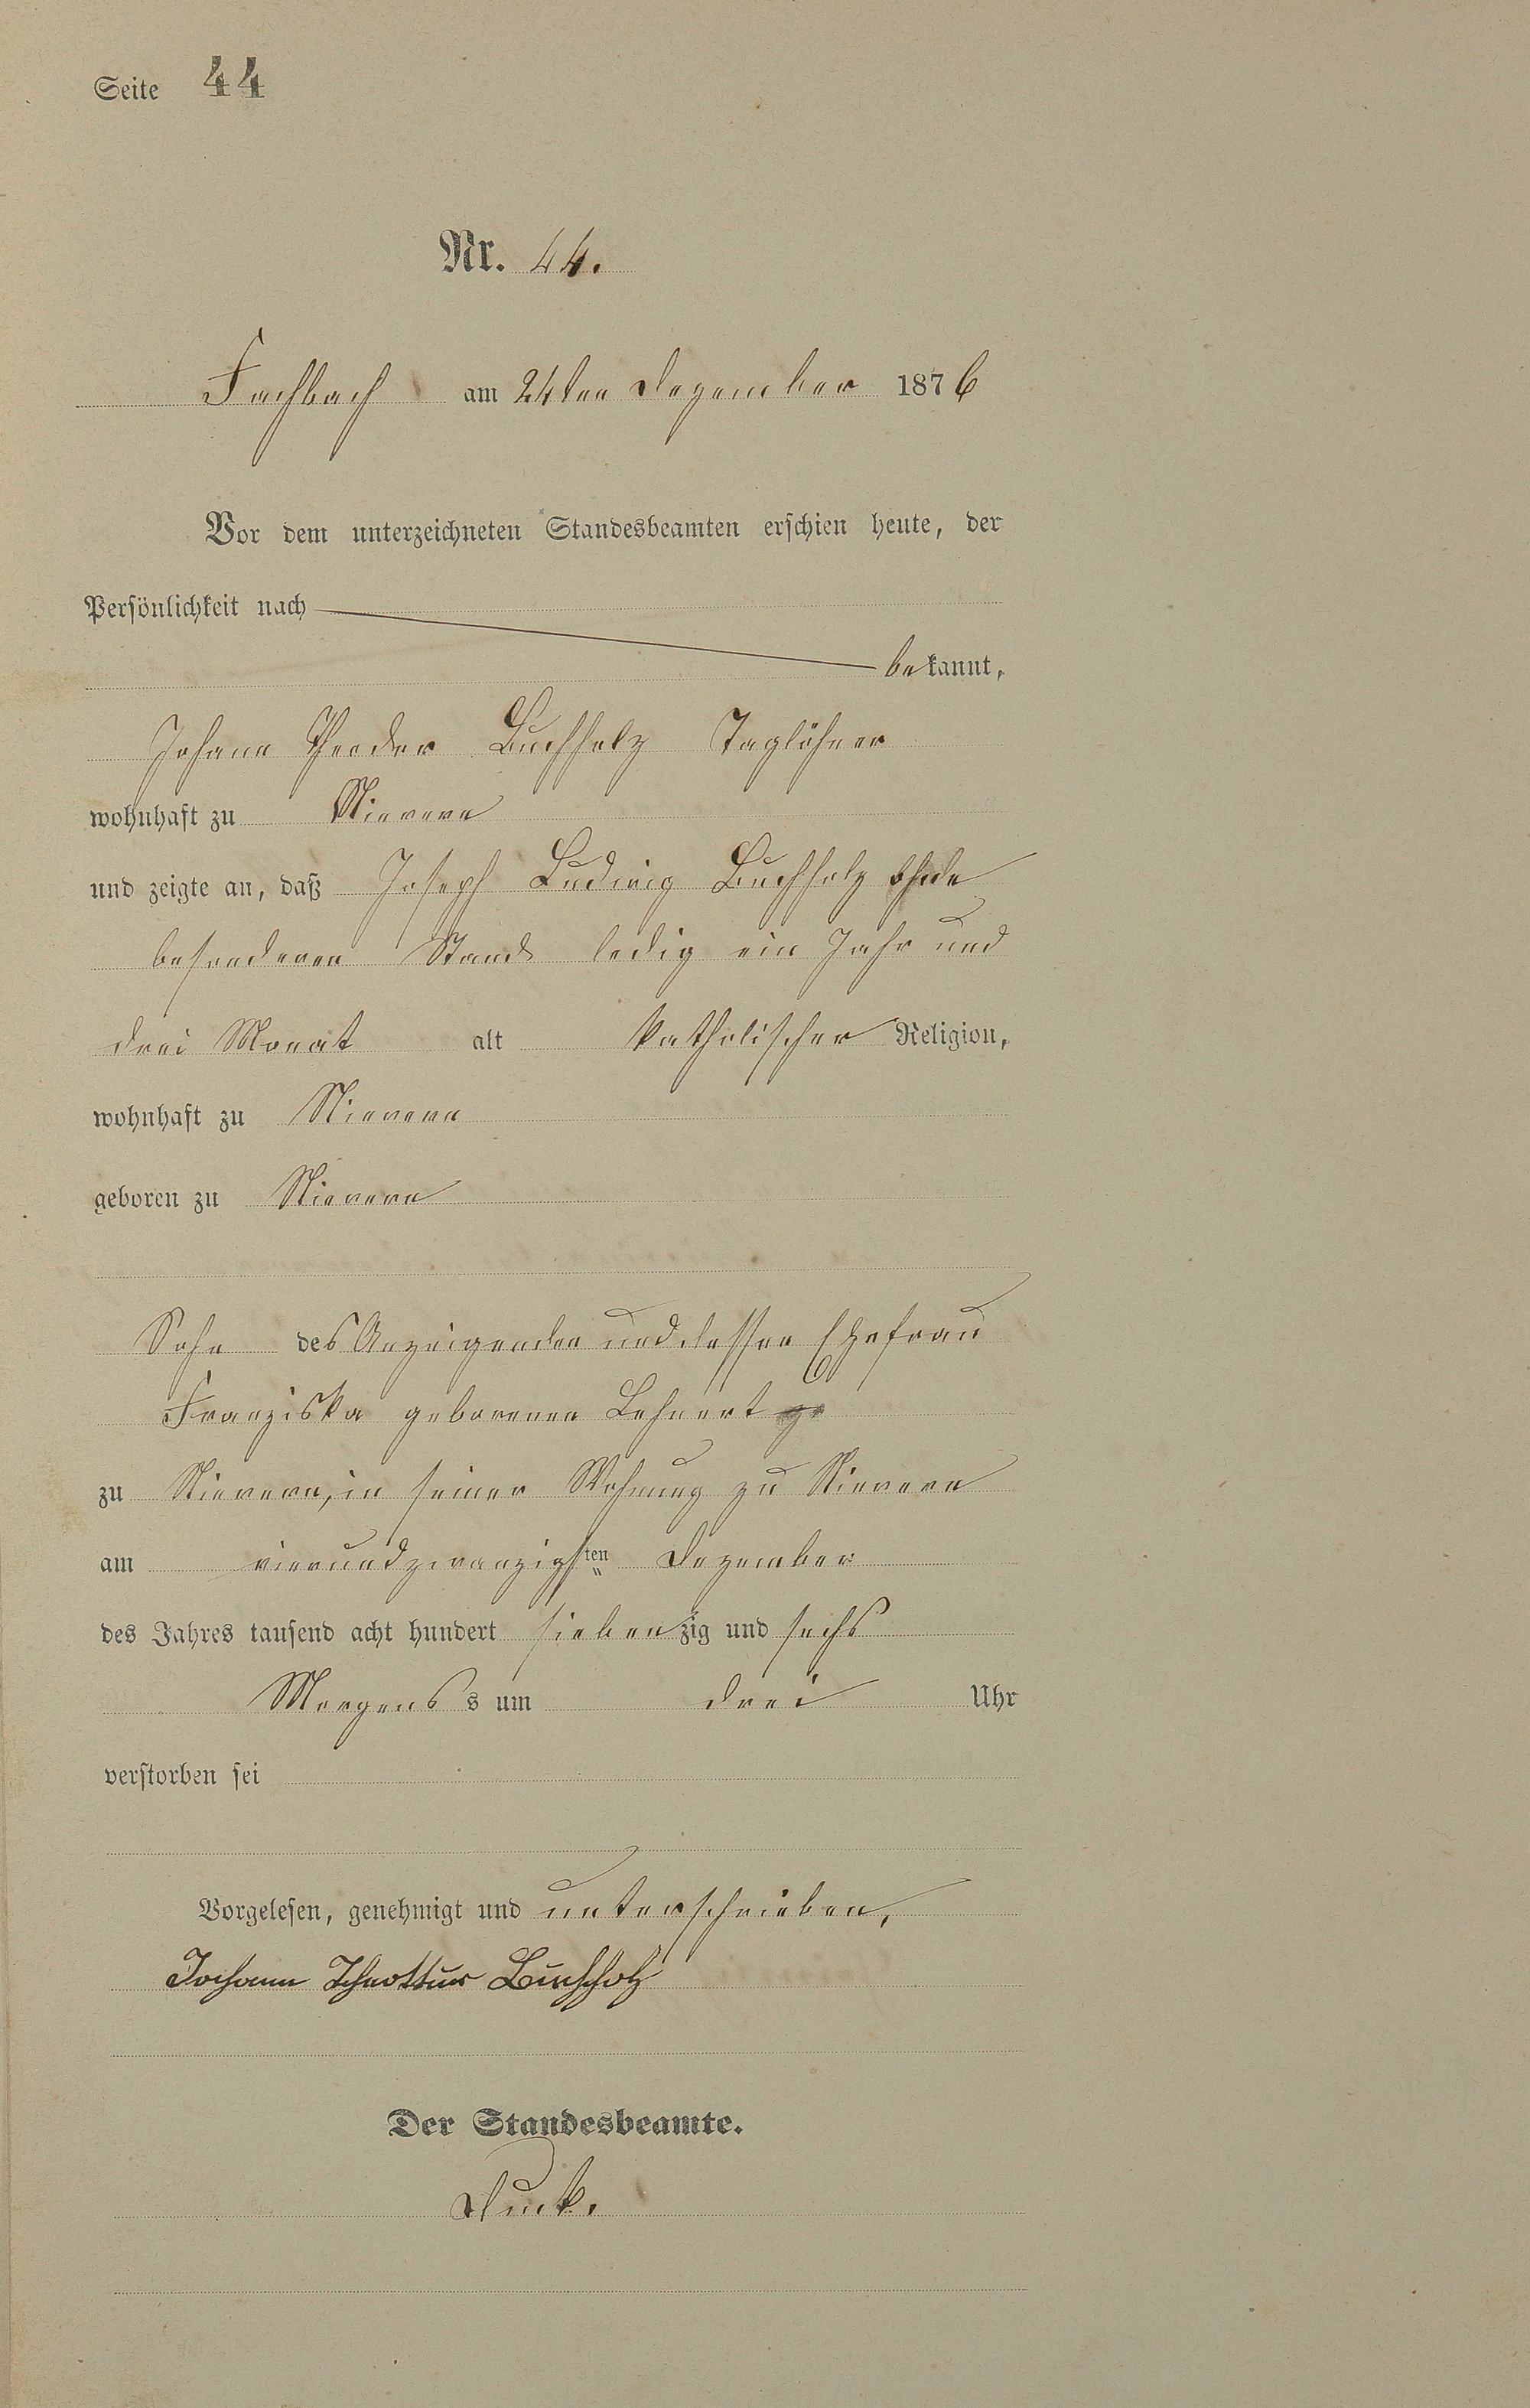 Seite 44
Nr. 44.
Fachbach am 24ten Dezember 1876
Vor dem unterzeichneten Standesbeamten erschien heute, der
Persönlichkeit nach
bekannt,
Johann Theodor Buchholz Taglöhner
wohnhaft zu Nievern
und zeigte an, daß Joseph Ludwig Buchholz ohne
besonderen Stand ledig ein Jahr und
drei Monat alt katholischer Religion,
wohnhaft zu Nievern
geboren zu Nievern
Sohn des Anzeigenden und dessen Ehefrau
Franziska geborenen Lehnert
zu Nievern, in seiner Wohnung zu Nievern
am vierundzwanzigsten Dezember
des Jahres tausend acht hundert siebenzig und sechs
Morgens s um drei Uhr
verstorben sei
Vorgelesen, genehmigt und unterschrieben,
Johann Buchholz
Der Standesbeamte.